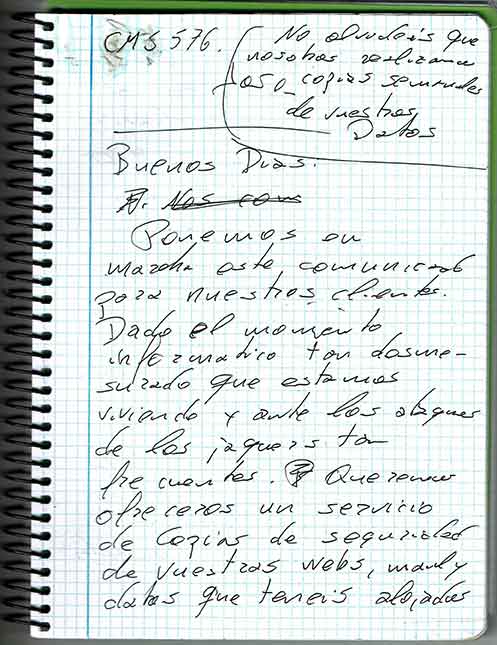 CMS 576.
No olvideis que
nosotros realizamos
copias semanales
de vuestros
Datos
Buenos Dias.
Nos com
Ponemos en
marcha este comunicado
para nuestros clientes.
Dado el momento
informatico tan desme-
surado que estamos
viviendo y ante los ataques
de los jaquers tan
frecuentes. Queremos
ofreceros un servicio
de Copias de seguridad
de vuestras webs, mail y
datos que teneis alojados